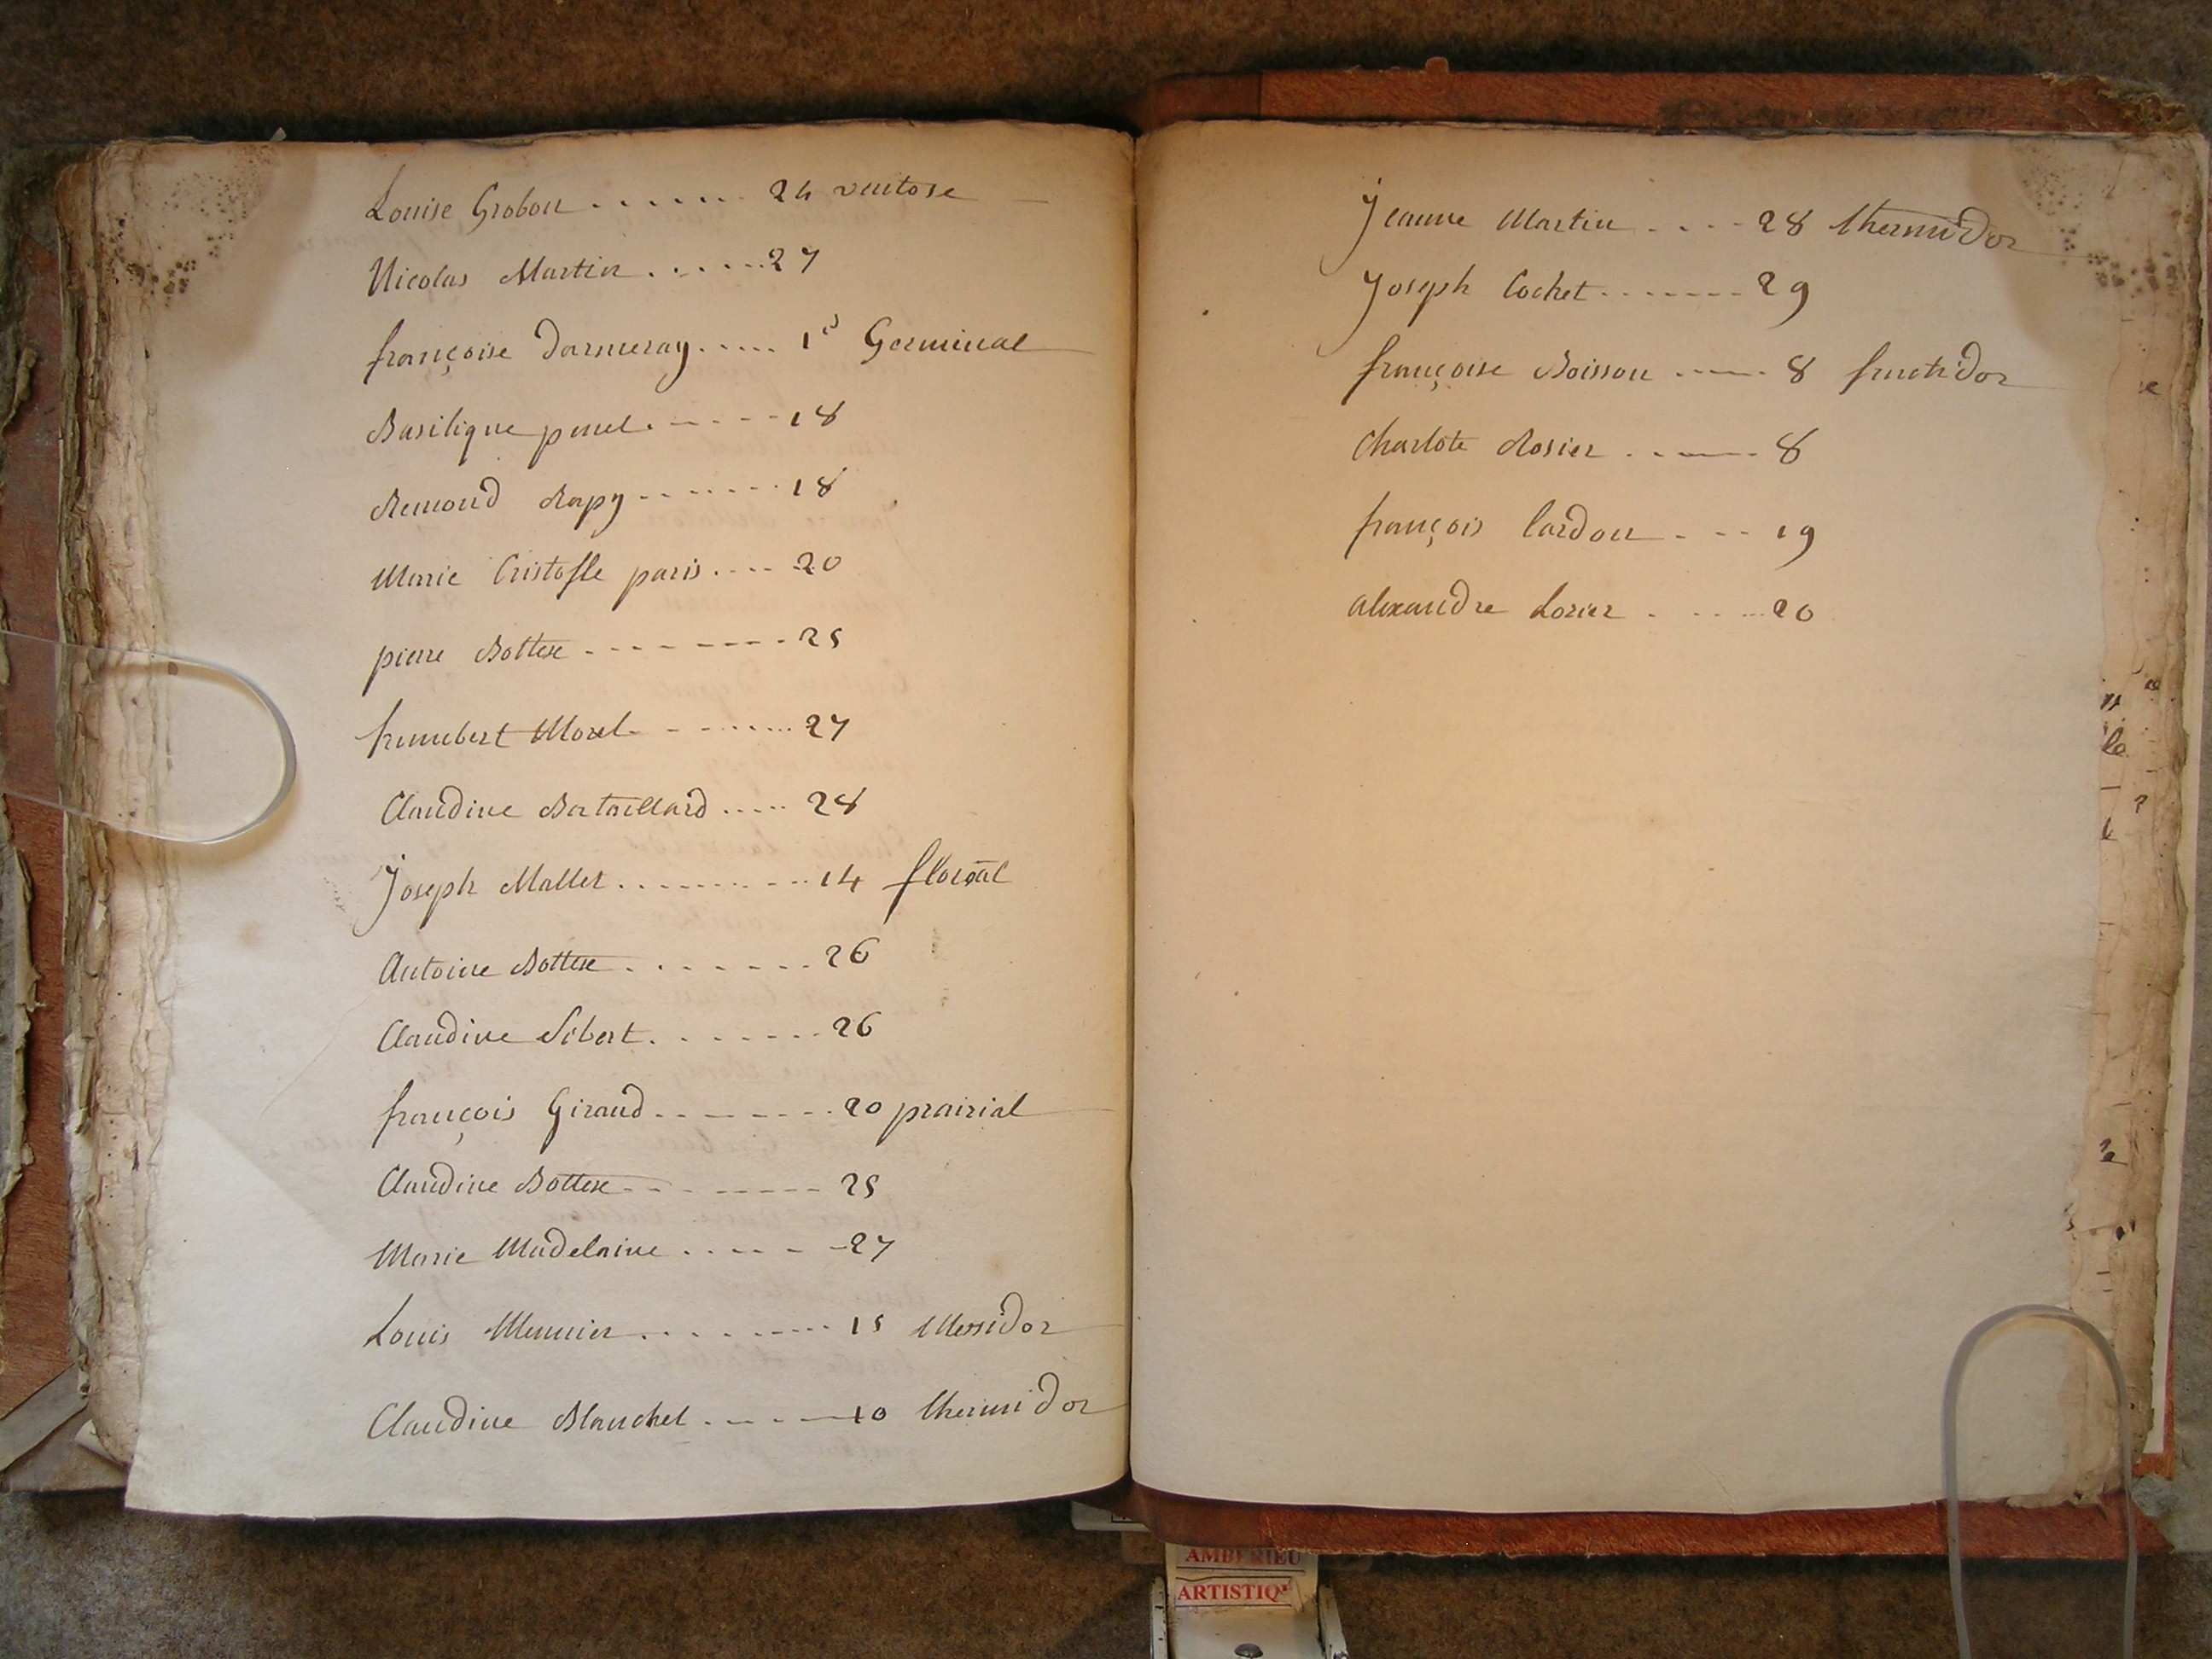 Louise Grobon ....... 24 ventose
Nicolas Martin ...... 27
françoise Darmeray ..... 1er Germinal
Basilique penel ..... 18
Remond Rapy ....... 18
Marie Cristofle paris .... 20
pierre Bottex -------- 25
humbert Morel ------- 27
Claudine Bataillard ..... 28
Joseph Mallet .......... 14 floreal
Antoine Bottex ....... 26
Claudine Sibert ....... 26
françois Giraud -------- 20 prairial
Claudine Bottex -------- 25
Marie Madelaine ...... 27
Louis Meunier ......... 15 Messidor
Claudine Blanchet ----- 10 thermidor
Jeanne Martin .... 28 thermidor
Joseph Cochet ....... 29
françoise Boisson ----- 8 fructidor
Charlote Rosier ----- 8
françois Cardon --- 19
alexandre Lorier ..... 20
AMBERIEU
ARTISTIQ